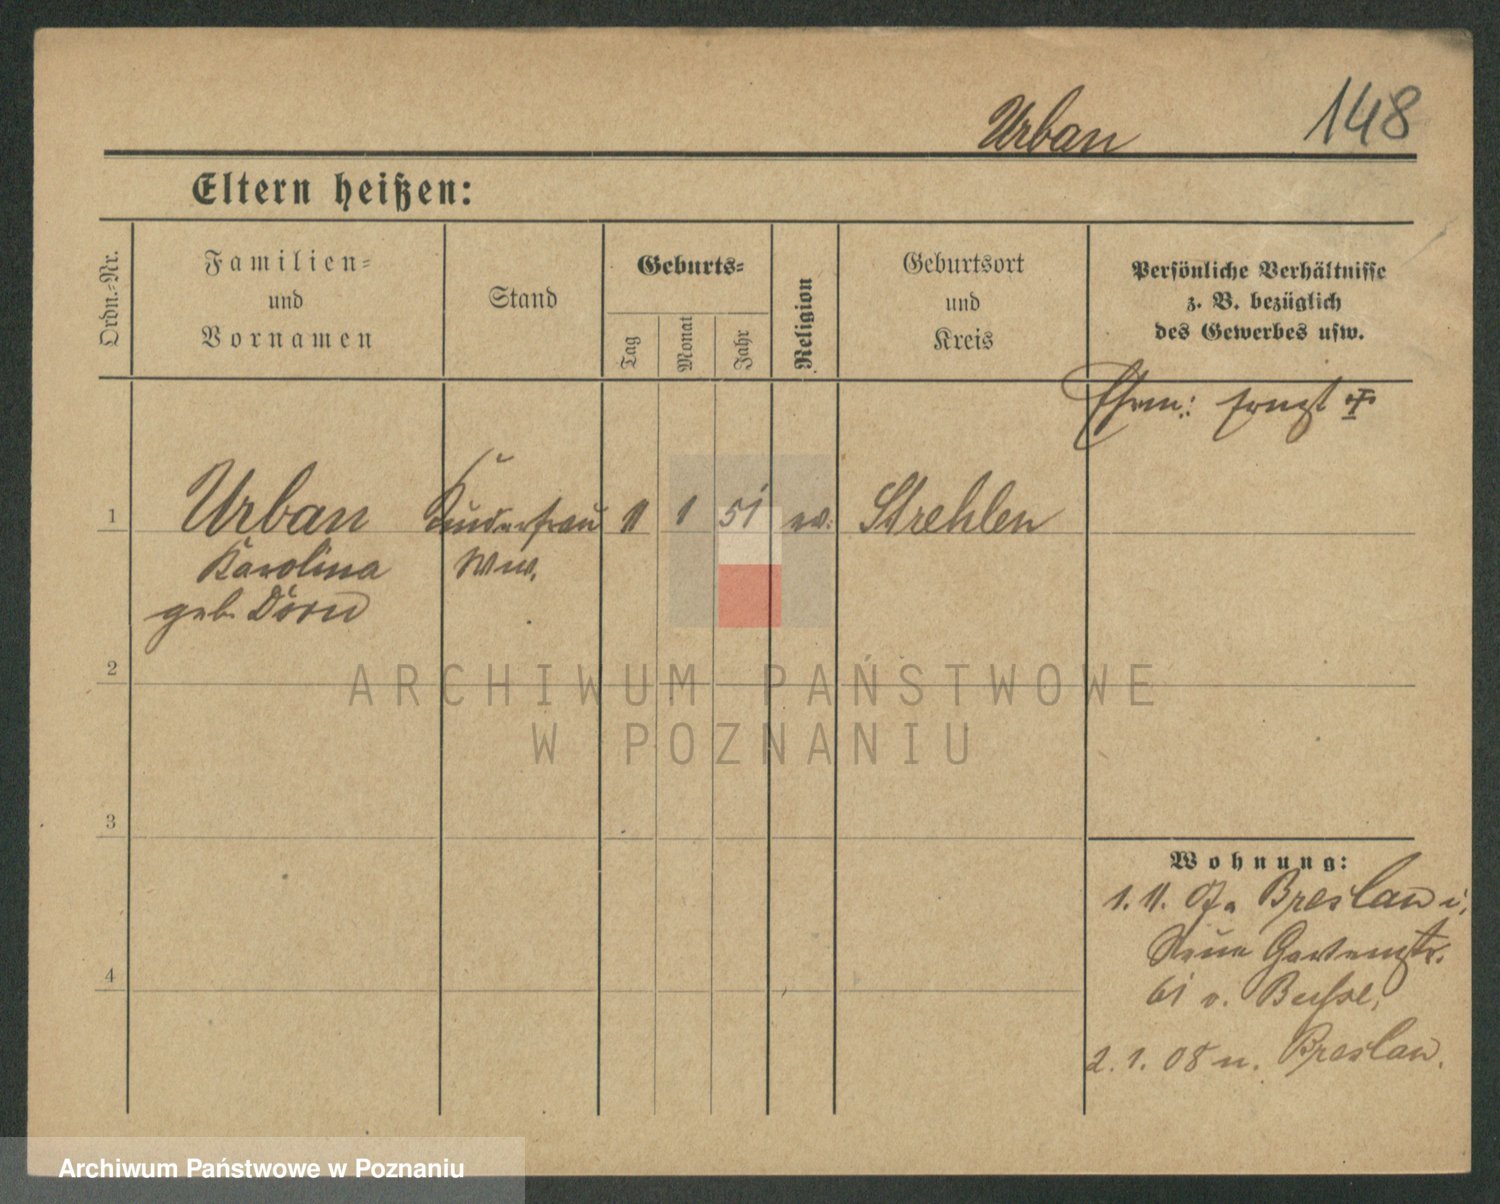 Urban 148
Eltern heißen:
Ordn.-Nr.
Familien-
und
Vornamen
Stand
Geburts-
Tag
Monat
Jahr
Religion
Geburtsort
und
Kreis
Persönliche Verhältnisse
z. B. bezüglich
des Gewerbes usw.
Ehem: Ernst
1 Urban Kinderfrau 11 1 51 ev. Strehlen
Karolina Ww.
geb. Dörn
2
ARCHIWUM PAŃSTWOWE
W POZNANIU
3
Wohnung:
1. 11. 07. Breslau
Neue Gartenstr.
61 v. Busse,
4
2. 1. 08 n. Breslau.
Archiwum Państwowe w Poznaniu